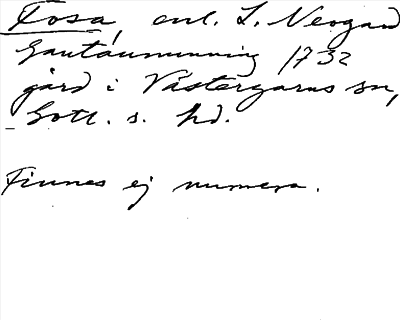 Tosa, enl. L. Neogard
Gautáuminning 1732
gård i Västergarns sn,
Gotl. s. hd.
Finnes ej numera.